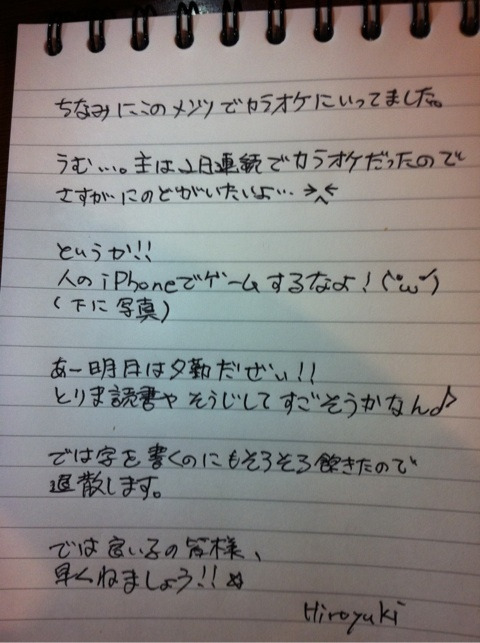 ちなみにこのメンツでカラオケにいってました。
うむ…。主は2日連続でカラオケだったので
さすがにのどがいたいよ… >へ<
というか!!
人のiPhoneでゲームするなよ!(°ω°)
(下に写真)
あー明日は夕勤だぜぃ!!
とりま読書や そうじして すごそうかなん♪
では字を書くのにもそろそろ飽きたので
退散します。
では良い子の皆様、
早くねましょう!!☆
Hiroyuki